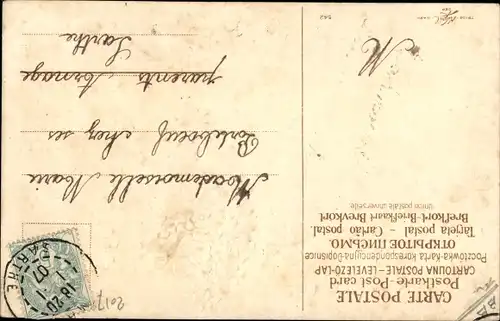 CARTE POSTALE
Postkarte-Post card
CARTOLINA POSTALE-LEVELEZÖ-LAP
Pocztówka-Karta korespondencyjna-Dopisnice
ОТКРЫТОЕ ПИСЬМО.
Tarjeta postal. - Cartão postal.
Brefkort-Briefkaart Brevkort
Union postale universelle
M
Mademoiselle Marie
Portebœuf chez ses
parents Arnage
Sarthe
SARTHE
18-20
07
562